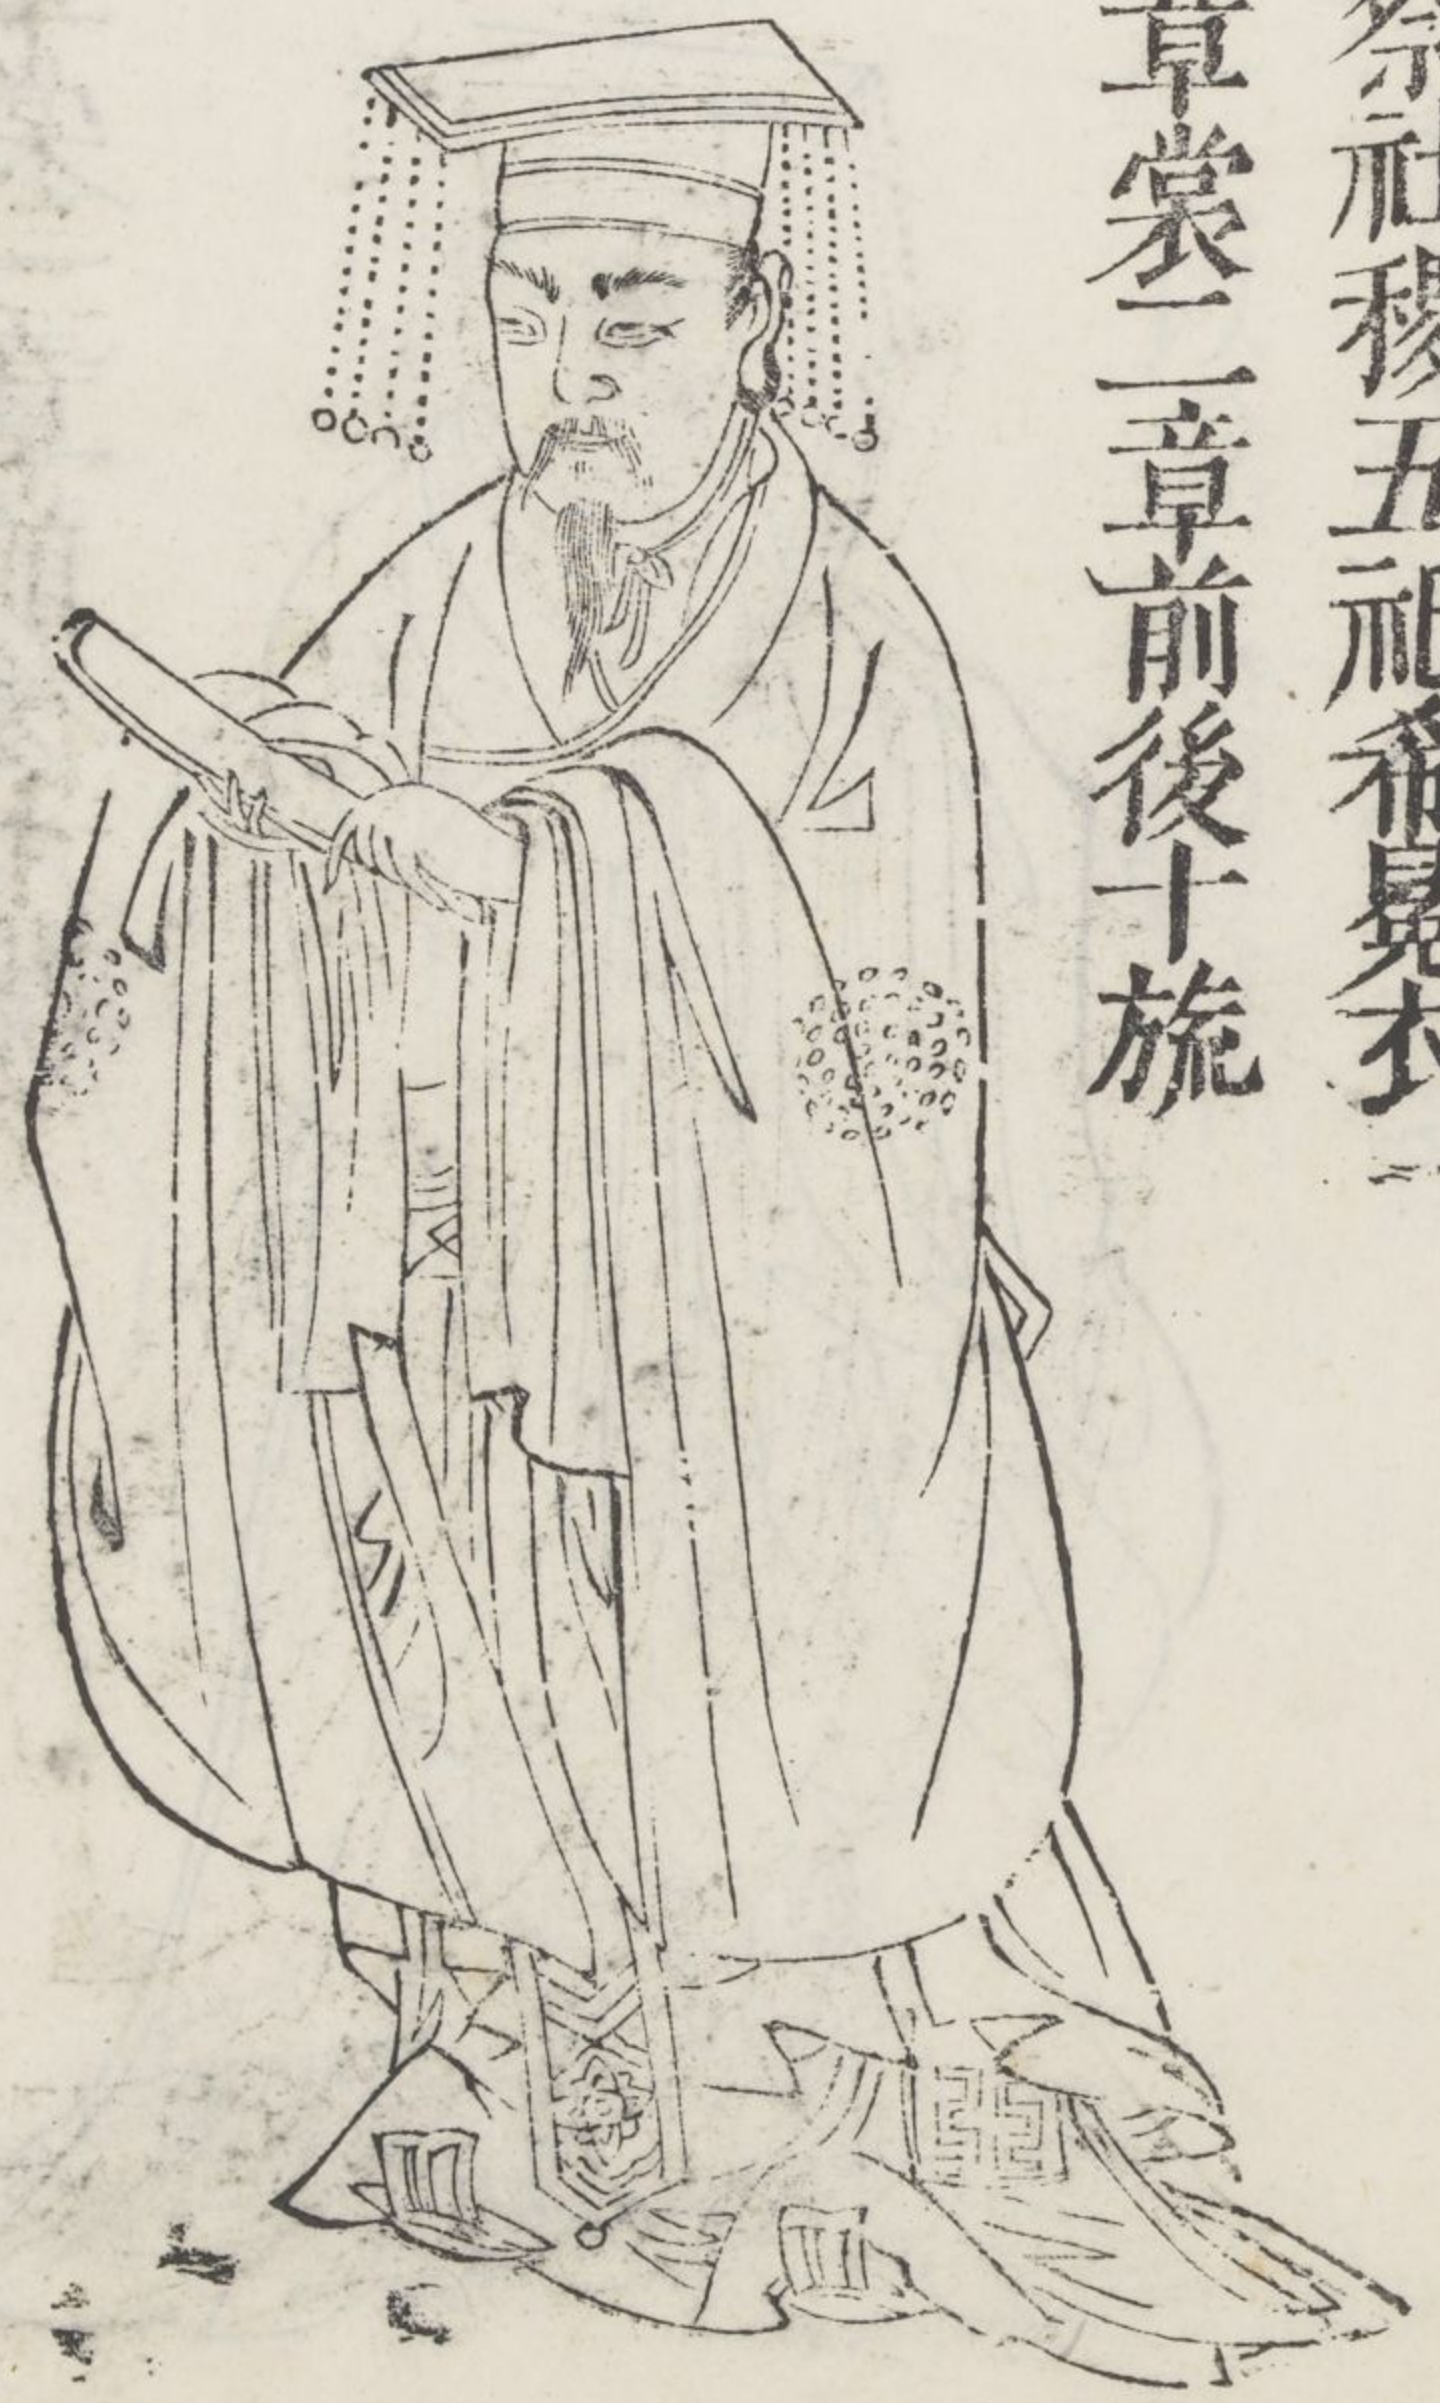 祭社稷五祀希冕衣一
章裳二章前後十旒